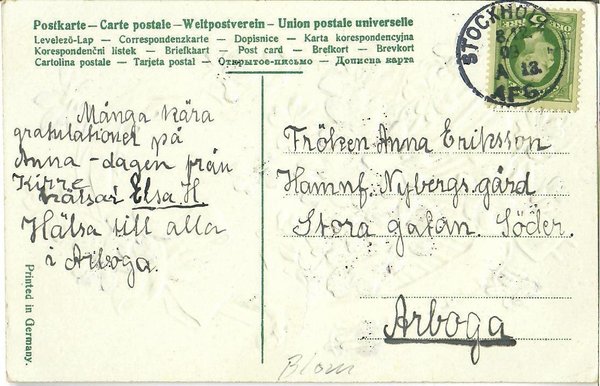 Postkarte – Carte postale – Weltpostverein – Union postale universelle
Levelező-Lap — Correspondenzkarte — Dopisnice — Karta korespondencyjna
Korespondenční listek — Briefkaart — Post card — Brefkort — Brevkort
Cartolina postale — Tarjeta postal — Открытое-письмо — Дописна карта
STOCKHOLM
8.12
A 13.
AFG.
5 ÖRE
Många kära
gratulationer på
Anna-dagen från
Kirre
hälsar Elsa H
Hälsa till alla
i Arboga.
Fröken Anna Eriksson
Hamnf. Nybergs gård
Stora gatan. Söder.
Arboga
Printed in Germany.
Blom